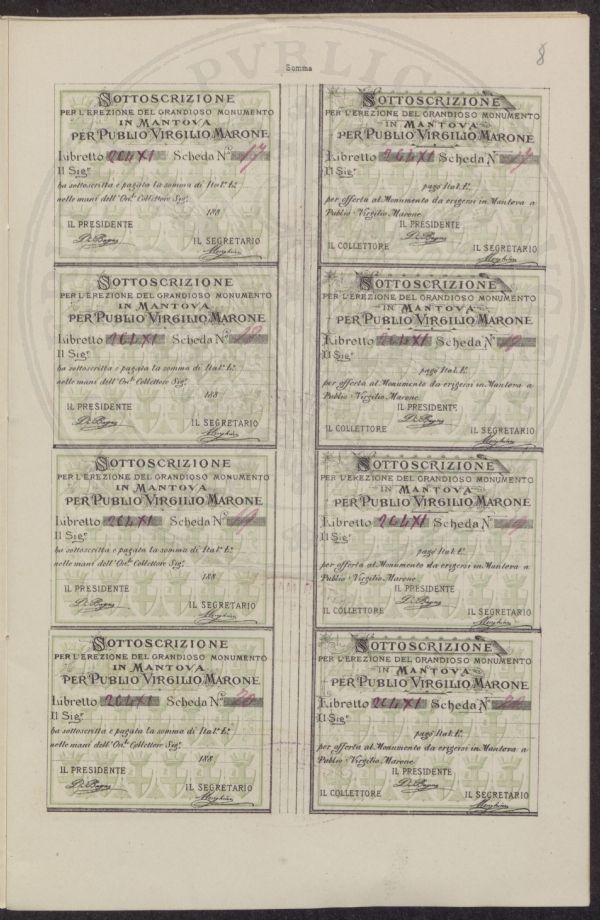 8
Somma
SOTTOSCRIZIONE
PER L'EREZIONE DEL GRANDIOSO MONUMENTO
IN MANTOVA
PER PUBLIO VIRGILIO MARONE
Libretto Scheda N.º 17
Il Sig.r
ha sottoscritta e pagata la somma di Ital. L.
nelle mani dell'On.le Collettore Sig.r
188
IL PRESIDENTE
IL SEGRETARIO
SOTTOSCRIZIONE
PER L'EREZIONE DEL GRANDIOSO MONUMENTO
IN MANTOVA
PER PUBLIO VIRGILIO MARONE
Libretto Scheda N.º 17
Il Sig.r
pagò Ital. L.
per offerta al Monumento da erigersi in Mantova a
Publio Virgilio Marone
IL PRESIDENTE
IL COLLETTORE IL SEGRETARIO
SOTTOSCRIZIONE
PER L'EREZIONE DEL GRANDIOSO MONUMENTO
IN MANTOVA
PER PUBLIO VIRGILIO MARONE
Libretto Scheda N.º 18
Il Sig.r
ha sottoscritta e pagata la somma di Ital. L.
nelle mani dell'On.le Collettore Sig.r
188
IL PRESIDENTE
IL SEGRETARIO
SOTTOSCRIZIONE
PER L'EREZIONE DEL GRANDIOSO MONUMENTO
IN MANTOVA
PER PUBLIO VIRGILIO MARONE
Libretto Scheda N.º
Il Sig.r
pagò Ital. L.
per offerta al Monumento da erigersi in Mantova a
Publio Virgilio Marone
IL PRESIDENTE
IL COLLETTORE IL SEGRETARIO
SOTTOSCRIZIONE
PER L'EREZIONE DEL GRANDIOSO MONUMENTO
IN MANTOVA
PER PUBLIO VIRGILIO MARONE
Libretto Scheda N.º 19
Il Sig.r
ha sottoscritta e pagata la somma di Ital. L.
nelle mani dell'On.le Collettore Sig.r
188
IL PRESIDENTE
IL SEGRETARIO
SOTTOSCRIZIONE
PER L'EREZIONE DEL GRANDIOSO MONUMENTO
IN MANTOVA
PER PUBLIO VIRGILIO MARONE
Libretto Scheda N.º 19
Il Sig.r
pagò Ital. L.
per offerta al Monumento da erigersi in Mantova a
Publio Virgilio Marone
IL PRESIDENTE
IL COLLETTORE IL SEGRETARIO
SOTTOSCRIZIONE
PER L'EREZIONE DEL GRANDIOSO MONUMENTO
IN MANTOVA
PER PUBLIO VIRGILIO MARONE
Libretto Scheda N.º 20
Il Sig.r
ha sottoscritta e pagata la somma di Ital. L.
nelle mani dell'On.le Collettore Sig.r
188
IL PRESIDENTE
IL SEGRETARIO
SOTTOSCRIZIONE
PER L'EREZIONE DEL GRANDIOSO MONUMENTO
IN MANTOVA
PER PUBLIO VIRGILIO MARONE
Libretto Scheda N.º
Il Sig.r
pagò Ital. L.
per offerta al Monumento da erigersi in Mantova a
Publio Virgilio Marone
IL PRESIDENTE
IL COLLETTORE IL SEGRETARIO